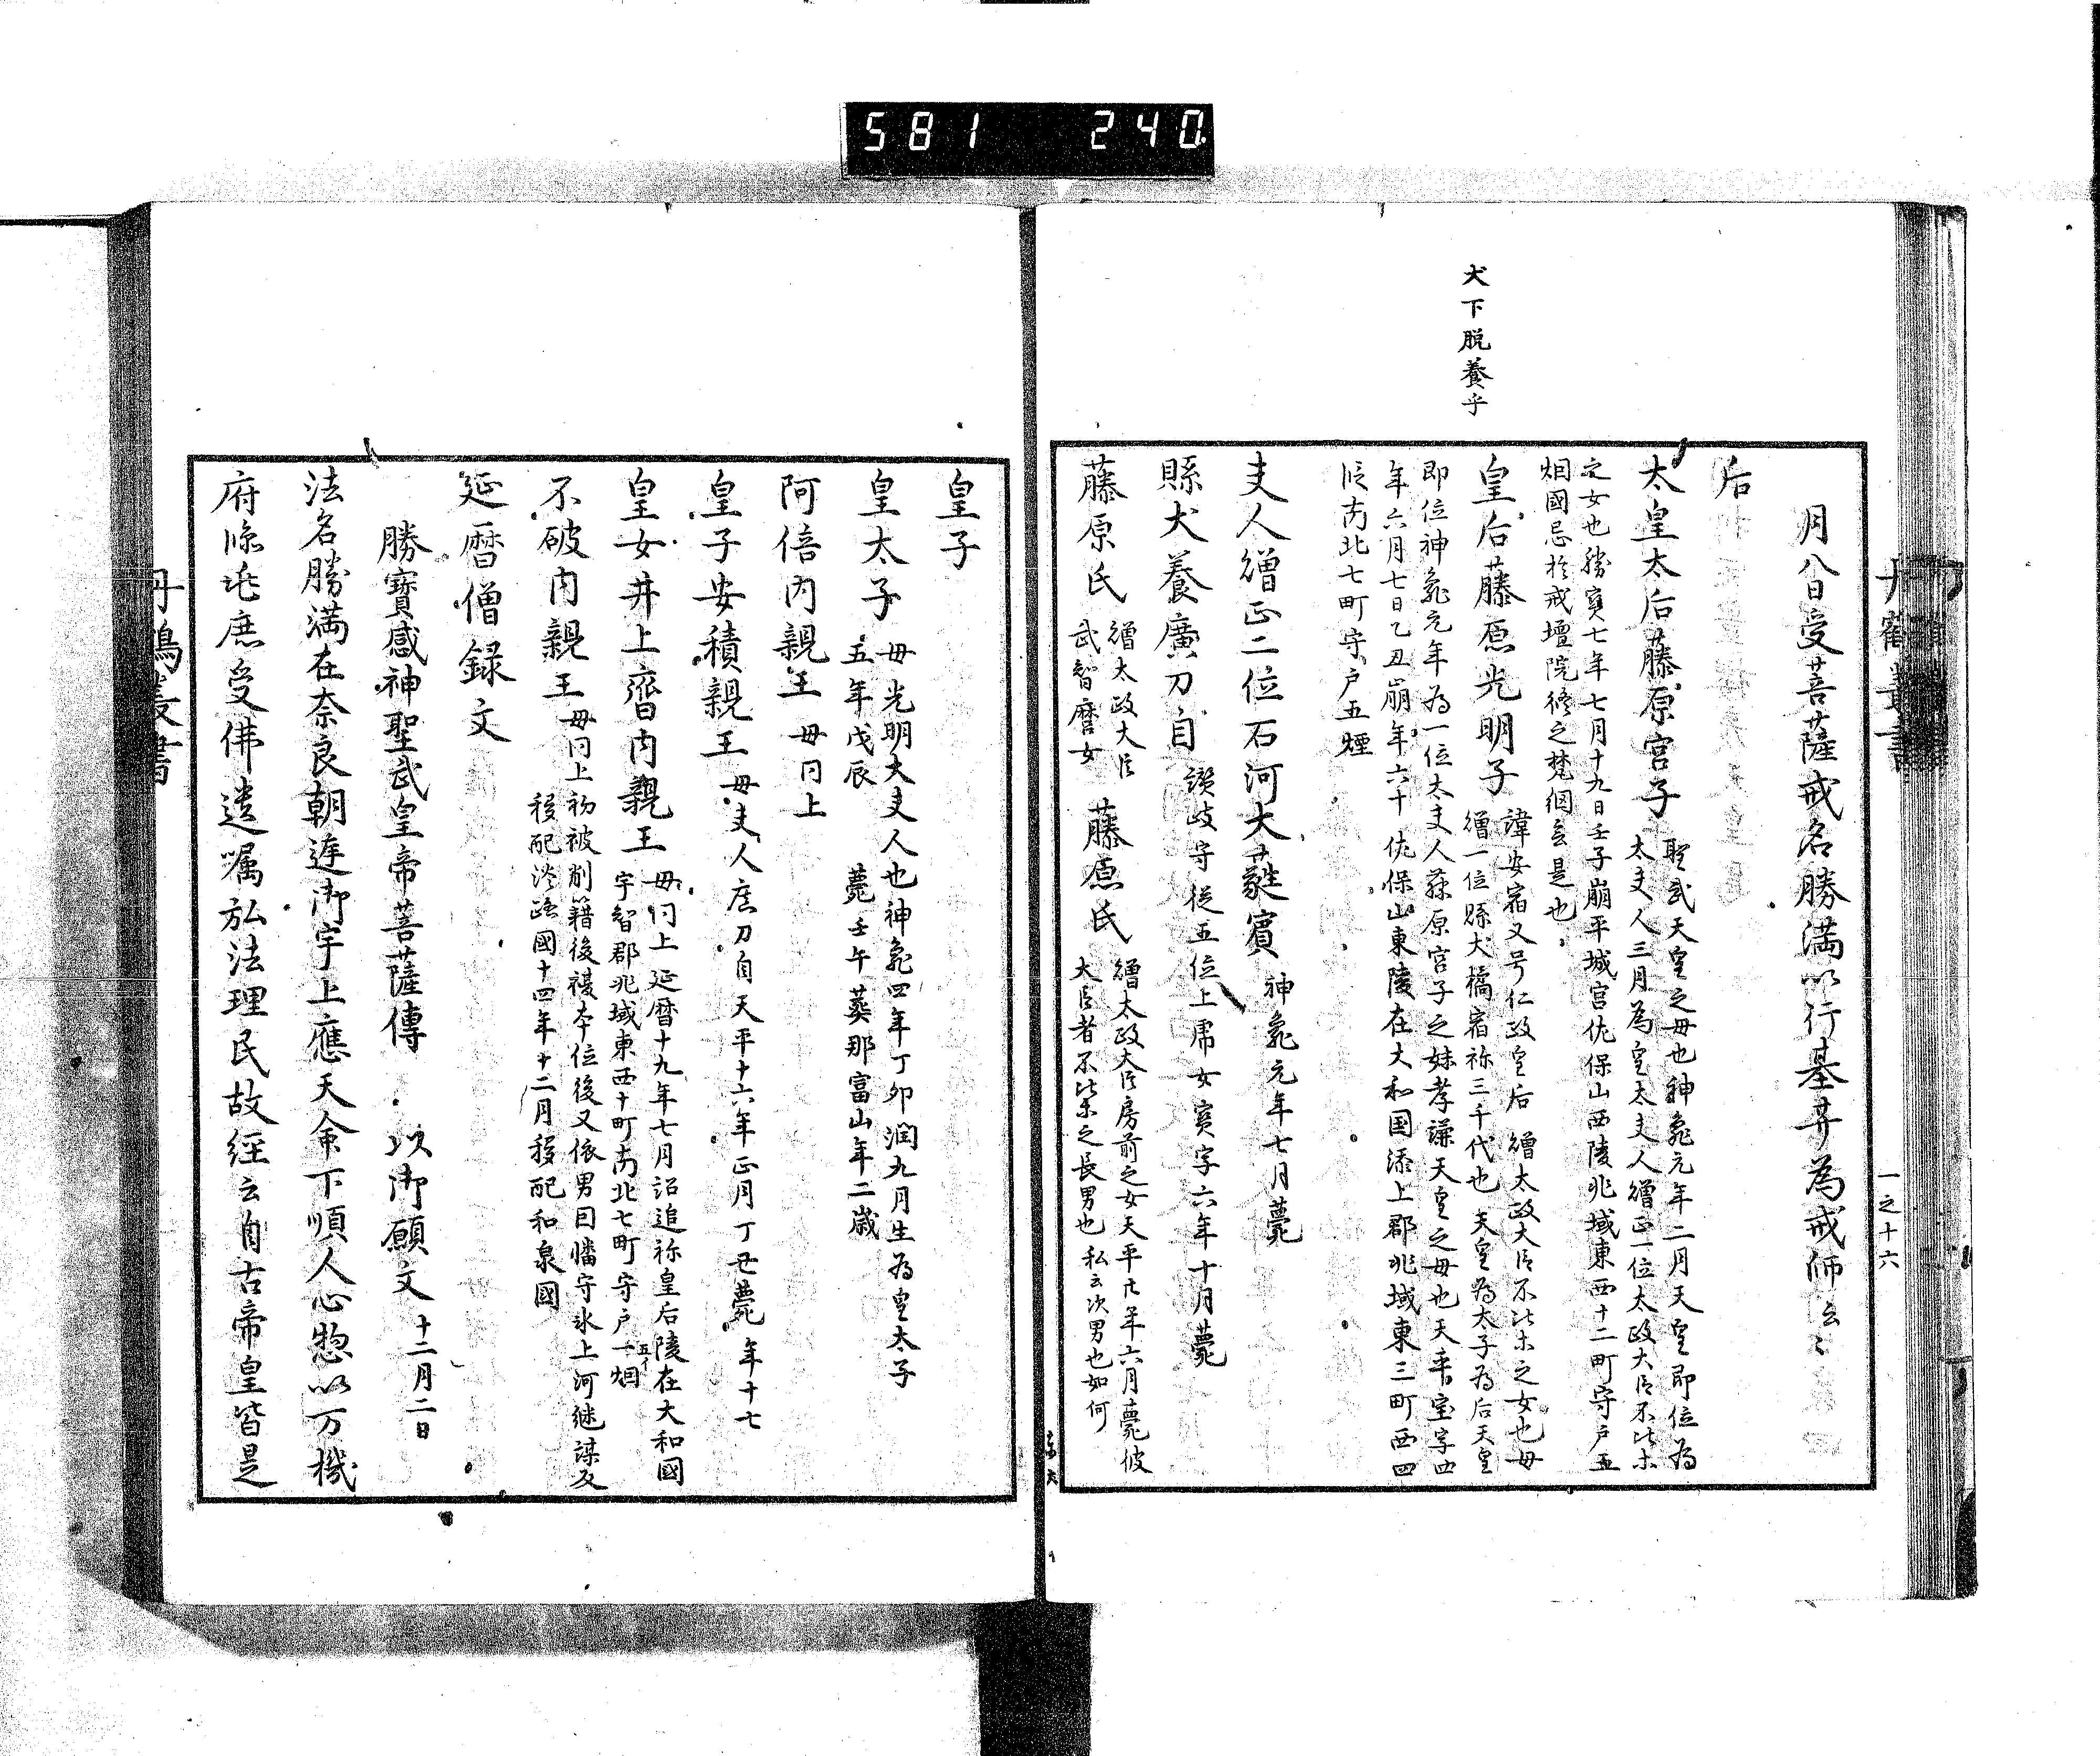 581 240
丹鶴叢書
一之十六
犬下脱養乎
月八日受菩薩戒名勝満以行基井為戒師云〻
后
太皇太后藤原宮子
聖武天皇之母也神亀元年二月天皇即位為
太夫人三月為皇太夫人繒正一位太政大臣不比木
之女也勝寳七年七月十九日壬子崩平城宮佐保山西陵兆域東西十二町守戸五
烟國忌於戒壇院修之梵網会是也
皇后藤原光明子
諱安宿又号仁政皇后 繒太政大臣不比木之女也母
繒一位縣犬橘宿祢三千代也 天皇為太子為后天皇
即位神亀元年為一位太夫人藤原宮子之妹孝謙天皇之母也天平宝字四
年六月七日乙丑崩年六十 佐保山東陵在大和国添上郡兆域東三町西四
段南北七町守戸五煙
夫人繒正二位石河大蕤賓
神亀元年七月薨
縣犬養廣刀自
讃岐守従五位上唐女寳字六年十月薨
藤原氏
繒太政大臣
武智麿女
藤原氏
繒太政大臣房前之女天平廿年六月薨彼
大臣者不比木之長男也 私云次男也如何
皇子
皇太子
母光明大夫人也神亀四年丁卯潤九月生為皇太子
五年戊辰 薨壬午葬那富山年二歳
阿倍内親王 母同上
皇子安積親王 母夫人廣刀自天平十六年正月丁丑薨年十七
皇女井上齊内親王
母同上 延暦十九年七月詔追祢皇后陵在大和國
宇智郡兆域東西十町南北七町守戸一烟
五イ
不破内親王
母同上初被削籍後複本位後又依男因幡守氷上河継謀反
移配淡路國十四年十二月移配和泉國
延暦僧録文
勝寳感神聖武皇帝菩薩傳 以御願文 十二月二日
法名勝満在奈良朝遅御宇上應天命下順人心惣以万機
府臨兆庶受佛遺嘱弘法理民故経云自古帝皇皆是
丹鶴叢書